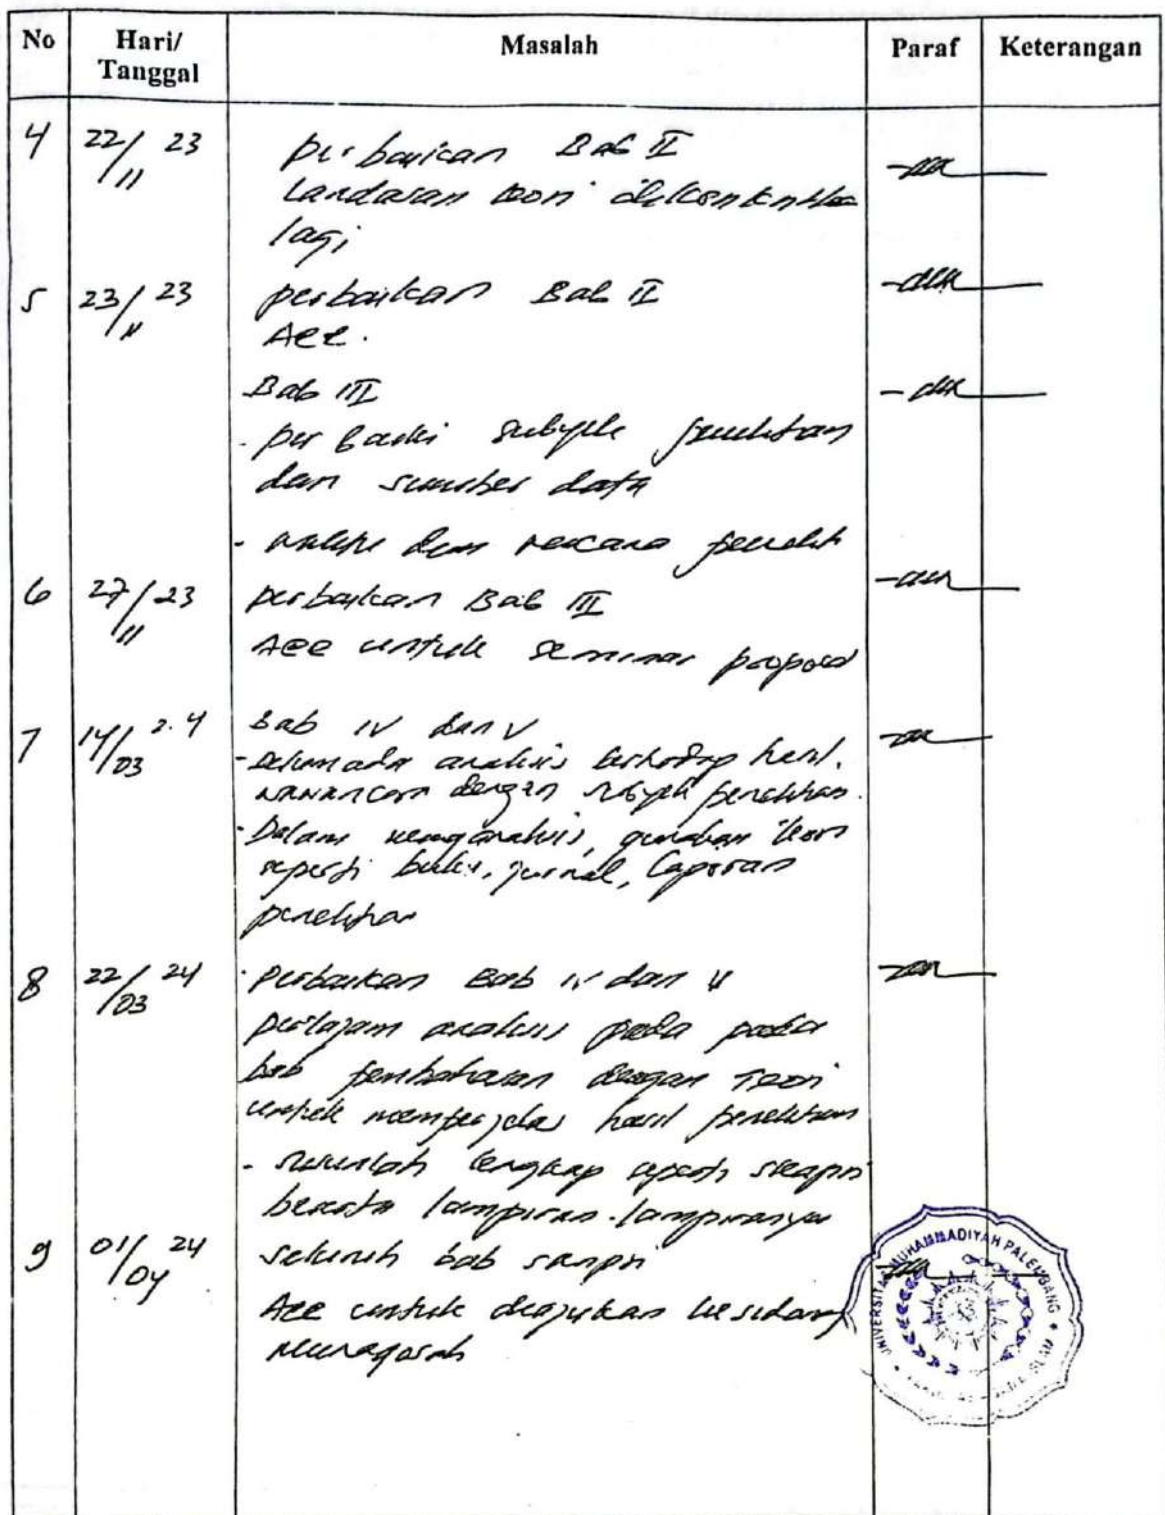 No Hari/ Tanggal Masalah Paraf Keterangan
4 22/11 23 perbaikan Bab II
Landasan teori
lagi
5 23/11 23 perbaikan Bab II
Acc.
Bab III
- perbaiki subyek penelitian
dan sumber data
- dan rencana penelit
6 27/11 23 perbaikan Bab III
Acc untuk seminar proposal
7 14/03 24 Bab IV dan V
- analisis terhadap hasil
wawancara dengan subyek penelitian.
- Dalam menganalisis, gunakan teori
seperti buku, jurnal, Laporan
penelitian
8 22/03 24 - Perbaikan Bab IV dan V
pertajam analisis pada pada
bab pembahasan dengan Teori
untuk memperjelas hasil penelitian
- susunlah lengkap seperti skripsi
beserta lampiran-lampirannya
9 01/04 24 seluruh bab skripsi
Acc untuk diajukan ke sidang
Munaqasah
UNIVERSITAS MUHAMMADIYAH PALEMBANG